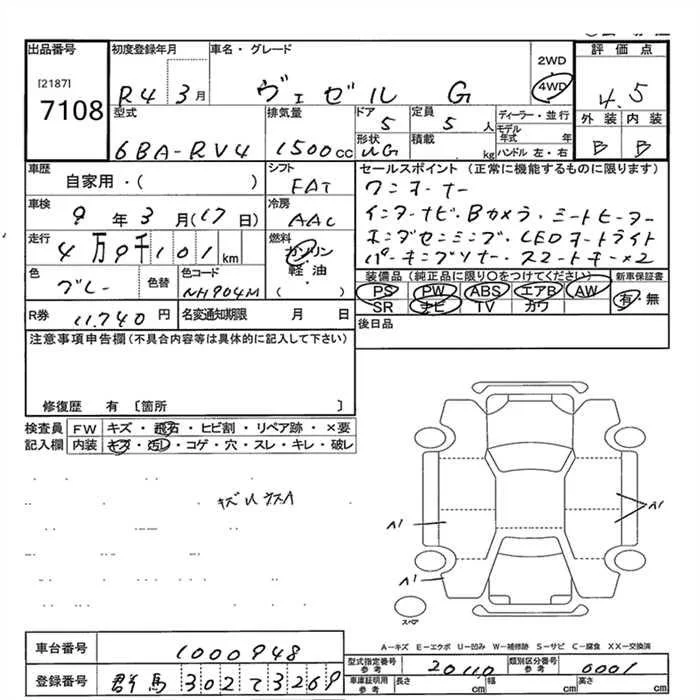 出品番号 初度登録年月 車名・グレード 2WD 評価点
[2187] 4WD
7108 R4 3月 ヴェゼル G 4.5
型式 排気量 ドア 定員 ディーラー・並行 外装 内装
5 5人 モデル年式 年
6BA-RV4 1500cc 形状 積載 kg ハンドル 左・右 B B
車歴 シフト セールスポイント (正常に機能するものに限ります)
自家用・( ) FAT ワンオーナー
車検 冷房 インターナビ・Bカメラ・シートヒーター
9年3月(17日) AAC ホンダセンシング・LEDオートライト
走行 燃料 パーキングソナー・スマートキー×2
4万9千101km ガソリン
軽・油
( )
色 色替 色コード 装備品(純正品に限り○をつけてください) 新車保証書
グレー NH904M PS PW ABS エアB AW 有・無
SR ナビ TV カワ
R券 11,740円 名変通知期限 月 日 後日品
注意事項申告欄(不具合内容等は具体的に記入して下さい)
修復歴 有 [箇所 ]
検査員 FW キズ・飛石・ヒビ割・リペア跡・×要
記入欄 内装 キズ・汚レ・コゲ・穴・スレ・キレ・破レ
A1
A1
A1
スペア
A-キズ E-エクボ U-凹み W-補修跡 S-サビ C-腐食 XX-交換済
車台番号 1000948
型式指定番号 参考 20110 類別区分番号 参考 0001
登録番号 群馬 302 て 3269
車庫証明用 参考 長さ cm 幅 cm 高さ cm